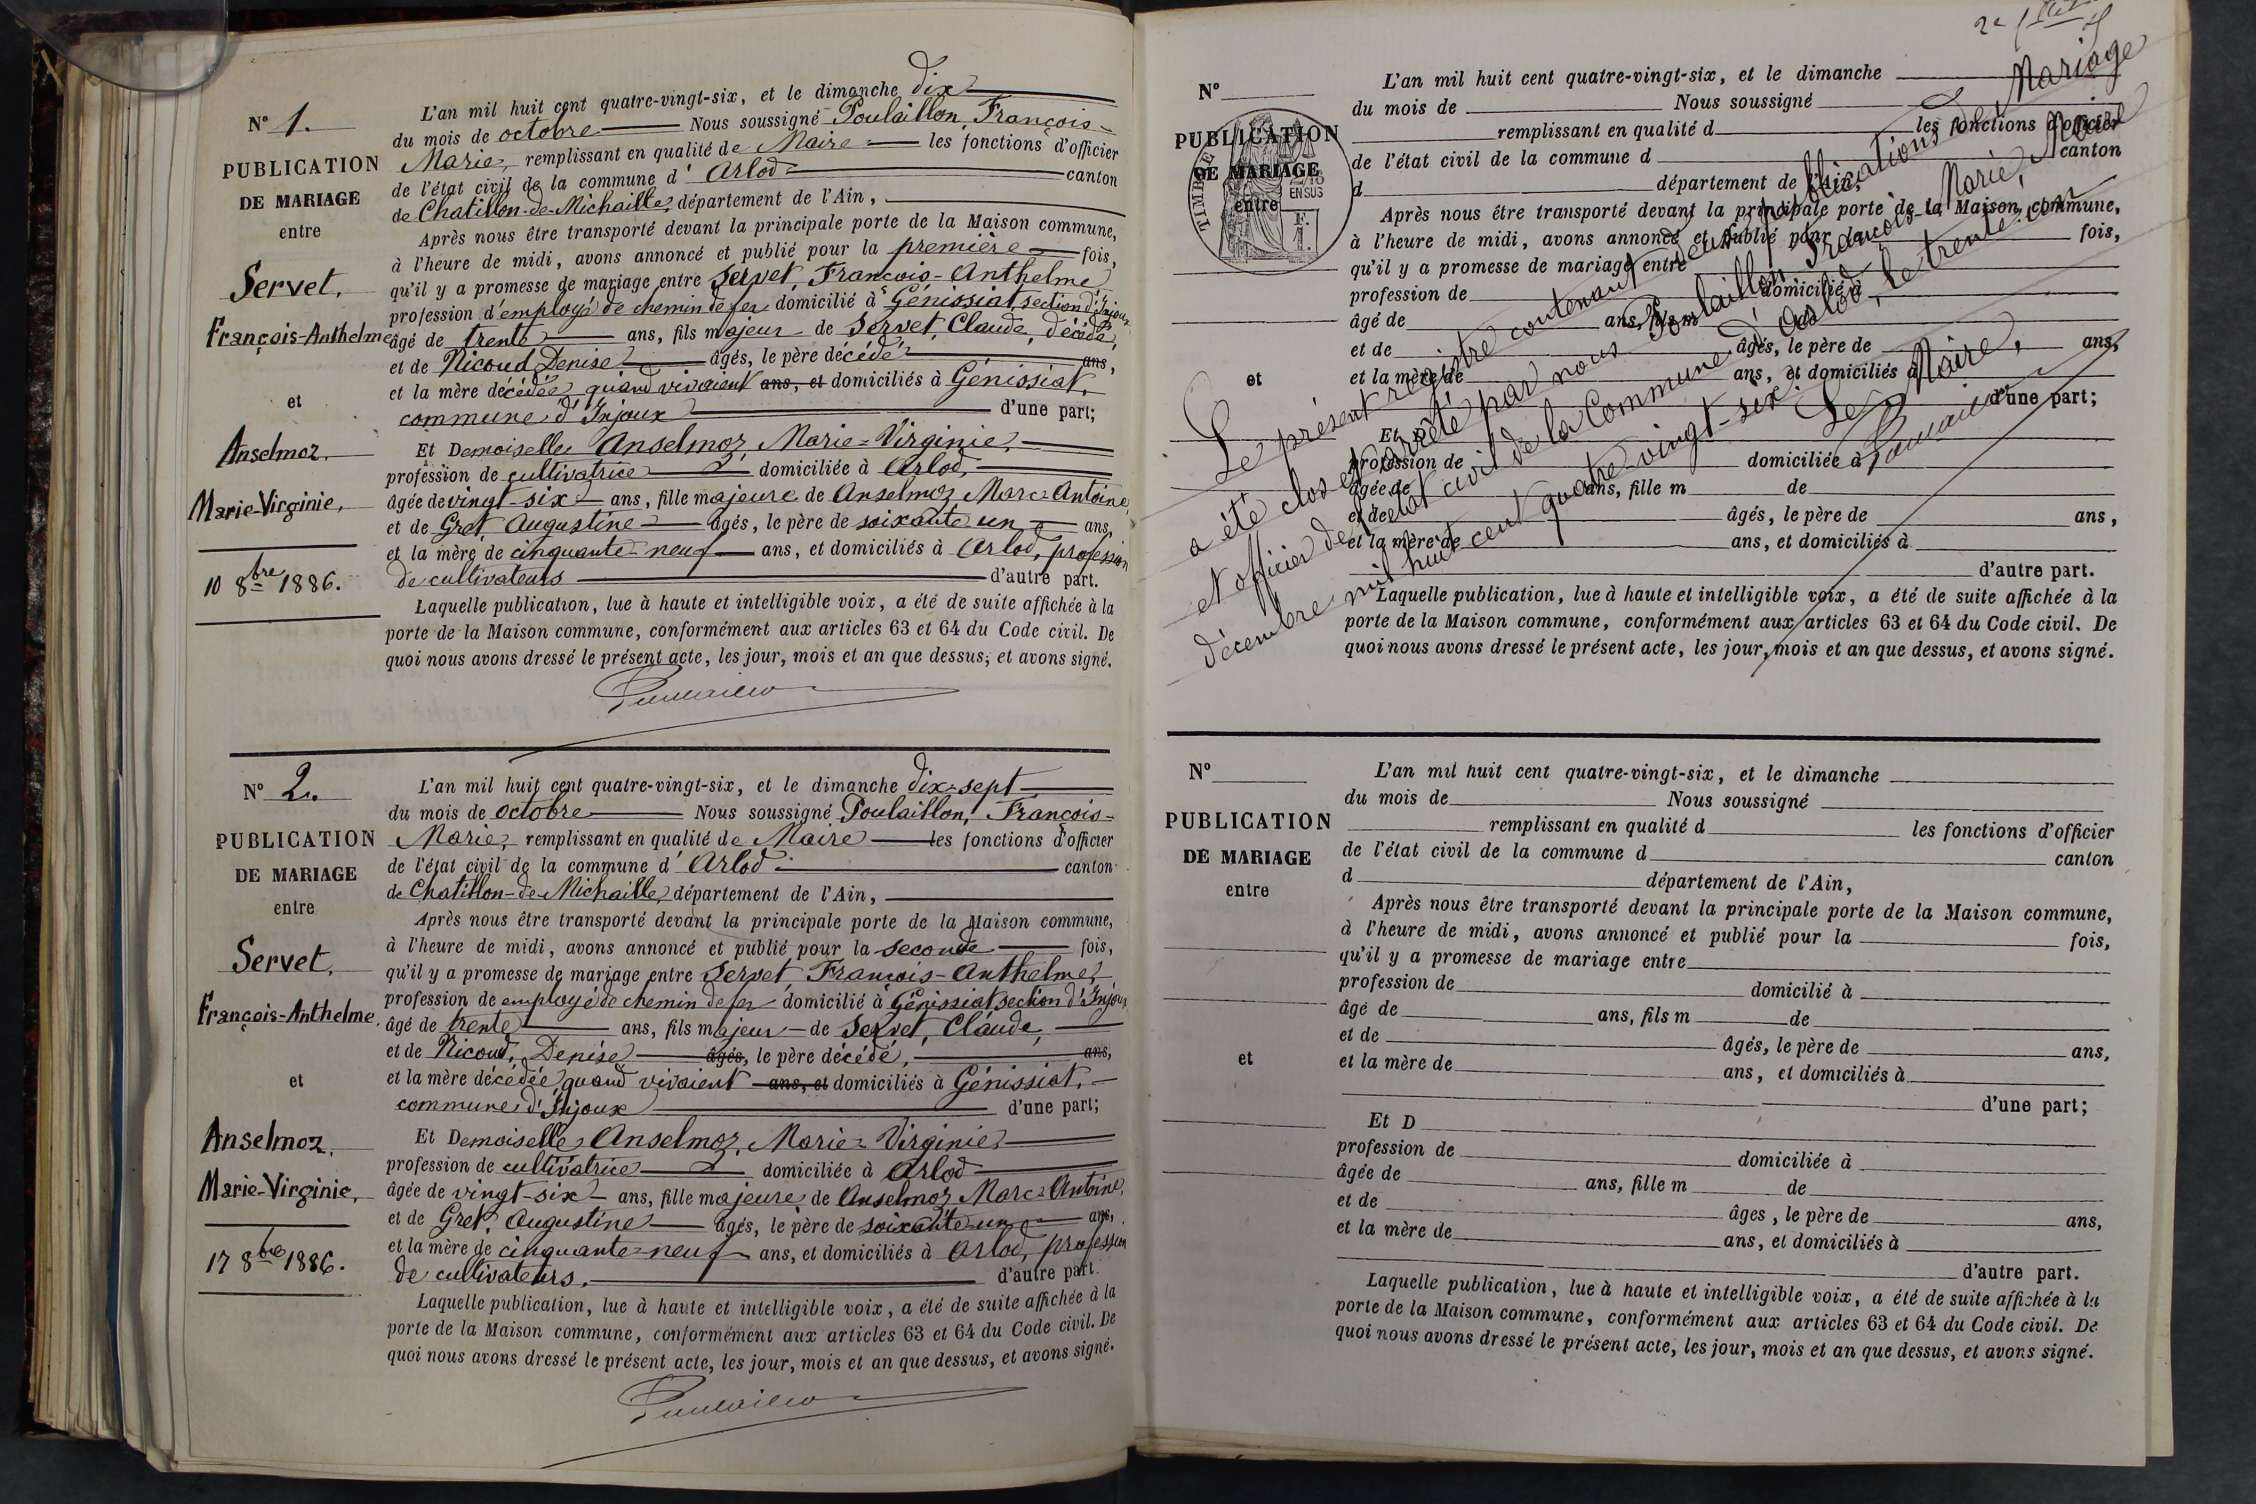 N° 1.
PUBLICATION
DE MARIAGE
entre
Servet,
François-Anthelme
et
Anselmoz,
Marie-Virginie,
10 8bre 1886.
L'an mil huit cent quatre-vingt-six, et le dimanche dix
du mois de octobre Nous soussigné Poulaillon, François-
Marie, remplissant en qualité de Maire les fonctions d'officier
de l'état civil de la commune d' Arlod canton
de Chatillon-de-Michaille, département de l'Ain,
Après nous être transporté devant la principale porte de la Maison commune,
à l'heure de midi, avons annoncé et publié pour la première fois,
qu'il y a promesse de mariage entre Servet, François-Anthelme,
profession d'employé de chemin de fer domicilié à Génissiat section d'Injoux
âgé de trente ans, fils majeur de Servet, Claude, décédé,
et de Nicoud Denise âgés, le père décédé ans,
et la mère décédée quand vivaient ans, et domiciliés à Génissiat,
commune d'Injoux d'une part;
Et Demoiselle Anselmoz, Marie-Virginie,
profession de cultivatrice domiciliée à Arlod,
âgée de vingt-six ans, fille majeure de Anselmoz Marc-Antoine
et de Gret, Augustine âgés, le père de soixante un ans,
et la mère de cinquante-neuf ans, et domiciliés à Arlod, profession
de cultivateurs d'autre part.
Laquelle publication, lue à haute et intelligible voix, a été de suite affichée à la
porte de la Maison commune, conformément aux articles 63 et 64 du Code civil. De
quoi nous avons dressé le présent acte, les jour, mois et an que dessus; et avons signé.
N° 2.
PUBLICATION
DE MARIAGE
entre
Servet,
François-Anthelme.
et
Anselmoz,
Marie-Virginie,
17 8bre 1886.
L'an mil huit cent quatre-vingt-six, et le dimanche dix-sept
du mois de octobre Nous soussigné Poulaillon, François-
Marie, remplissant en qualité de Maire les fonctions d'officier
de l'état civil de la commune d' Arlod canton
de Chatillon-de-Michaille, département de l'Ain,
Après nous être transporté devant la principale porte de la Maison commune,
à l'heure de midi, avons annoncé et publié pour la seconde fois,
qu'il y a promesse de mariage entre Servet, François-Anthelme,
profession de employé de chemin de fer domicilié à Génissiat section d'Injoux
âgé de trente ans, fils majeur de Servet, Claude,
et de Nicoud, Denise âgés, le père décédé, ans,
et la mère décédée, quand vivaient ans, et domiciliés à Génissiat,
commune d'Injoux d'une part;
Et Demoiselle Anselmoz, Marie-Virginie,
profession de cultivatrice domiciliée à Arlod
âgée de vingt-six ans, fille majeure de Anselmoz Marc-Antoine,
et de Gret, Augustine âgés, le père de soixante-un ans,
et la mère de cinquante-neuf ans, et domiciliés à Arlod, profession
de cultivateurs, d'autre part.
Laquelle publication, lue à haute et intelligible voix, a été de suite affichée à la
porte de la Maison commune, conformément aux articles 63 et 64 du Code civil. De
quoi nous avons dressé le présent acte, les jour, mois et an que dessus, et avons signé.
N°
PUBLICATION
DE MARIAGE
entre
et
TIMBRE
EN SUS
F.
L'an mil huit cent quatre-vingt-six, et le dimanche
du mois de Nous soussigné
remplissant en qualité d les fonctions d'officier
de l'état civil de la commune d canton
d département de l'Ain,
Après nous être transporté devant la principale porte de la Maison commune,
à l'heure de midi, avons annoncé et publié pour la fois,
qu'il y a promesse de mariage entre
profession de domicilié à
âgé de ans, fils m de
et de âgés, le père de ans,
et la mère de ans, et domiciliés à
d'une part;
Et D
profession de domiciliée à
âgée de ans, fille m de
et de âgés, le père de ans,
et la mère de ans, et domiciliés à
d'autre part.
Laquelle publication, lue à haute et intelligible voix, a été de suite affichée à la
porte de la Maison commune, conformément aux articles 63 et 64 du Code civil. De
quoi nous avons dressé le présent acte, les jour, mois et an que dessus, et avons signé.
Le présent registre contenant deux publications de Mariage
a été clos et arrêté par nous Poulaillon François-Marie, Maire
et officier de l'état civil de la Commune d'Arlod, le trente-un
décembre mil huit cent quatre-vingt-six.
Le Maire,
N°
PUBLICATION
DE MARIAGE
entre
et
L'an mil huit cent quatre-vingt-six, et le dimanche
du mois de Nous soussigné
remplissant en qualité d les fonctions d'officier
de l'état civil de la commune d canton
d département de l'Ain,
Après nous être transporté devant la principale porte de la Maison commune,
à l'heure de midi, avons annoncé et publié pour la fois,
qu'il y a promesse de mariage entre
profession de domicilié à
âgé de ans, fils m de
et de âgés, le père de ans,
et la mère de ans, et domiciliés à
d'une part;
Et D
profession de domiciliée à
âgée de ans, fille m de
et de âges, le père de ans,
et la mère de ans, et domiciliés à
d'autre part.
Laquelle publication, lue à haute et intelligible voix, a été de suite affichée à la
porte de la Maison commune, conformément aux articles 63 et 64 du Code civil. De
quoi nous avons dressé le présent acte, les jour, mois et an que dessus, et avons signé.